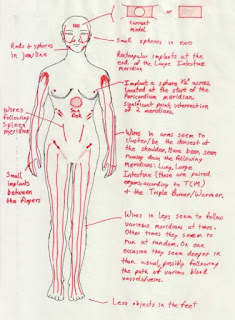 OR
Current
model
Small spheres in ears
Rods + spheres
in jawline
Rectangular implants at the
end of the Large Intestine
meridian
Implant: a sphere 1/2" across,
located at the start of the
Pericardium meridian.
Significant point: intersection
of 2 meridians.
Wires
following
Spleen
meridian
Wires in arms seem to
cluster/be the densest at
the shoulder. Have been seen
running down the following
meridians: Lung, Large
Intestine (these are paired
organs according to TCM)
+ the Triple Burner/Warmer.
Small
implants
between
the fingers
Wires in legs seem to follow
various meridians at times.
Other times they seem to
run at random. On one
occasion they seem deeper in
than usual, possibly following
the path of various blood
vessels/veins.
Less objects in the feet